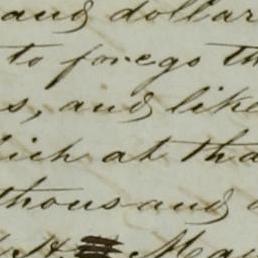 and dollar
to forego th
s, and like
hich at tha
thousand
H. Ma